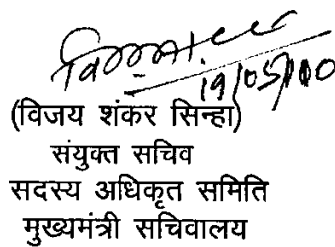 19/05/10
(विजय शंकर सिन्हा)
संयुक्त सचिव
सदस्य अधिकृत समिति
मुख्यमंत्री सचिवालय